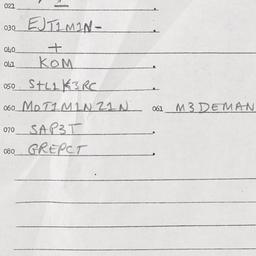 021
030 EJT1M1N-
040 +
041 KOM
050 S+L1K3RC
060 MOT1M1NZ1N 061 M3DEMAN
070 SAP3T
080 GREPCT